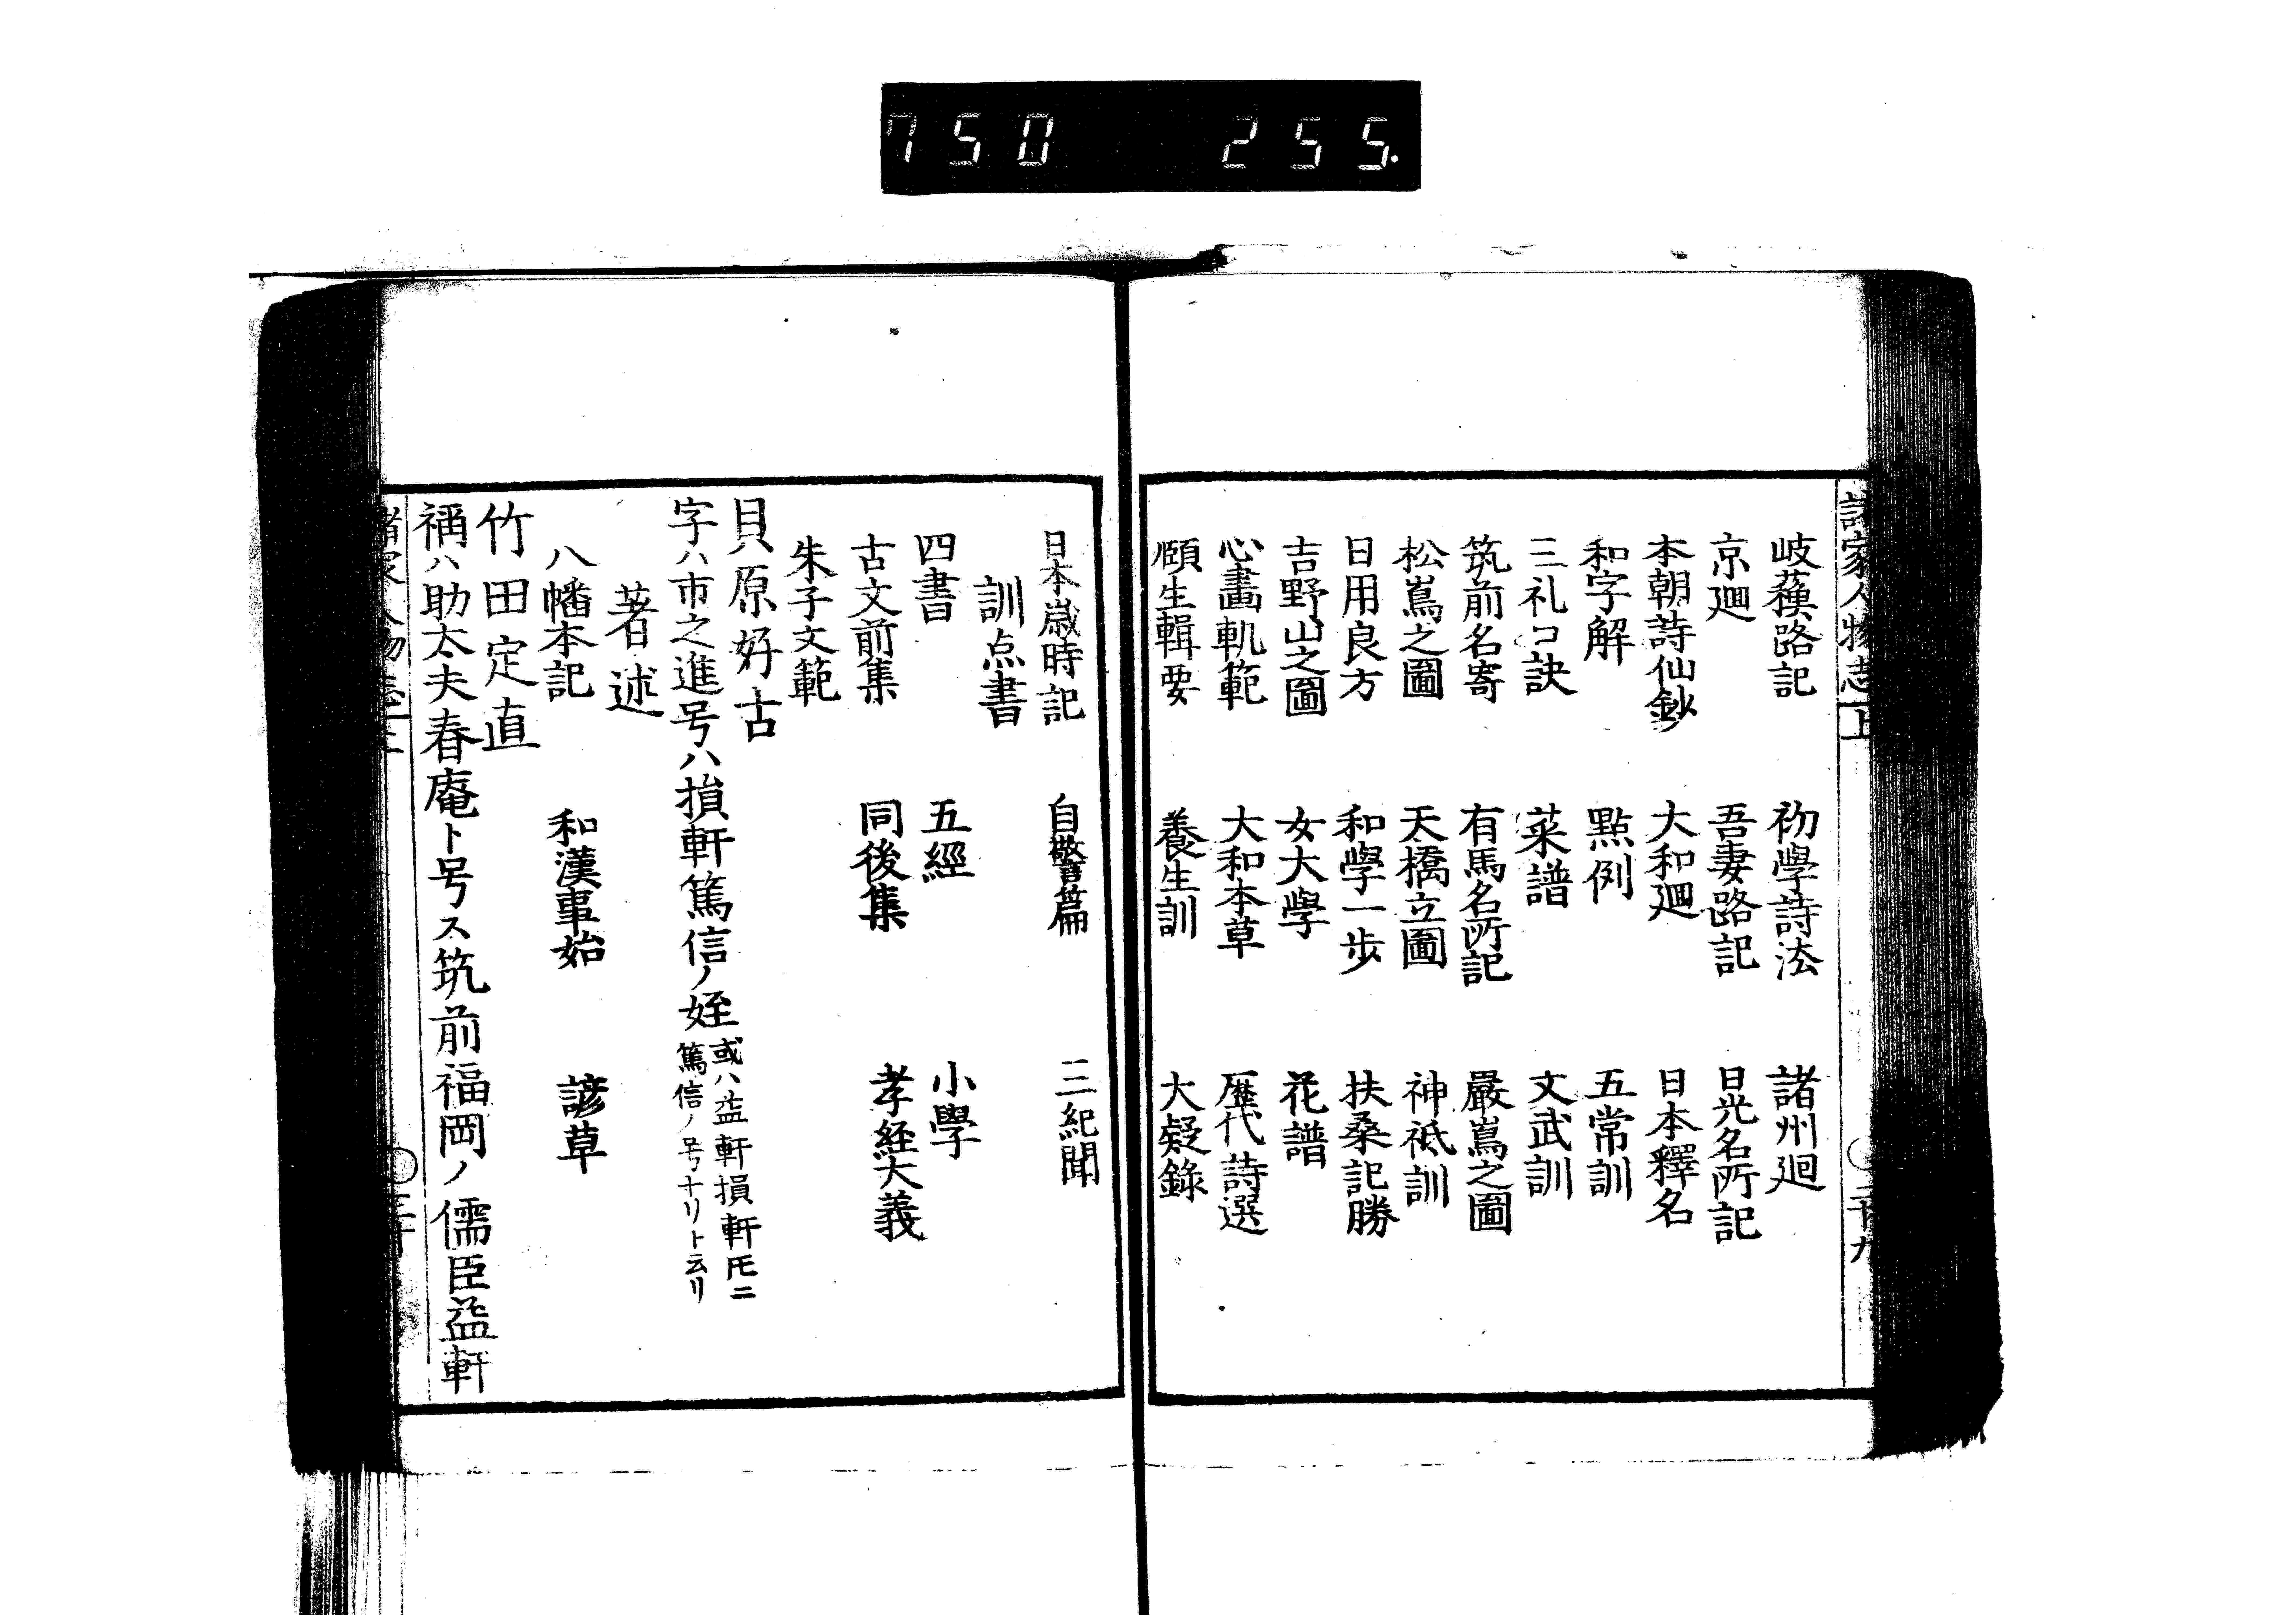 750 255.
諸家人物志 上 二十九
岐蘓路記 初學詩法 諸州廻
京廻 吾妻路記 日光名所記
本朝詩仙鈔 大和廻 日本釋名
和字解 點例 五常訓
三礼口訣 菜譜 文武訓
筑前名寄 有馬名所記 嚴嶌之圖
松嶌之圖 天橋立圖 神祇訓
日用良方 和學一步 扶桑記勝
吉野山之圖 女大學 花譜
心畫軌範 大和本草 歷代詩選
頤生輯要 養生訓 大疑錄
日本歲時記 自警篇 三紀聞
訓点書
四書 五經 小學
古文前集 同後集 孝経大義
朱子文範
貝原好古
字ハ市之進号ハ損軒篤信ノ姪 或ハ益軒損軒𪜈ニ
篤信ノ号ナリト云リ
著述
八幡本記 和漢事始 諺草
竹田定直
稱ハ助太夫春庵ト号ス筑前福岡ノ儒臣益軒
諸家人物志